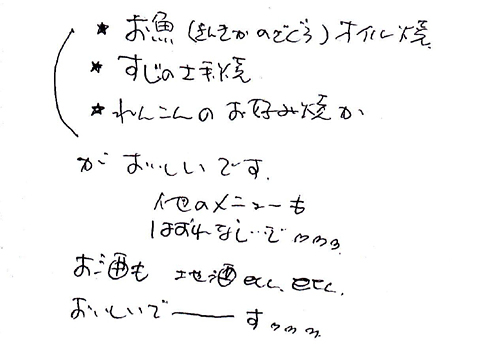 ★ お魚(きんきかのどぐろ)オイル焼
★ すじの土手焼
★ れんこんのお好み焼か
がおいしいです。
他のメニューも
はずれなしでm m m
お酒も 地酒 etc. etc.
おいしいで――すm m m